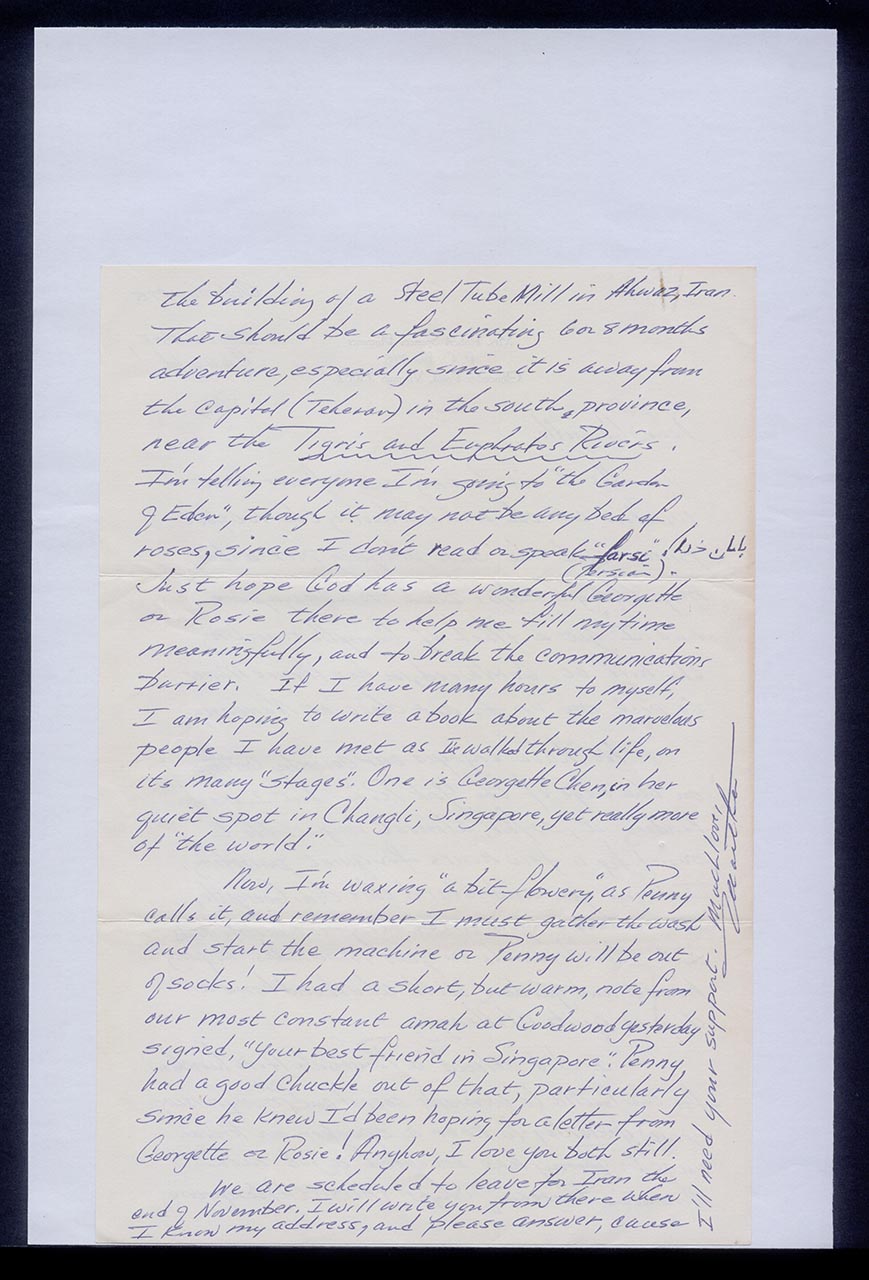 the building of a Steel Tube Mill in Ahwaz, Iran.
That should be a fascinating 6 or 8 months
adventure, especially since it is away from
the Capitol (Teheran) in the south province,
near the Tigris and Euphratos Rivers.
I'm telling everyone I'm going to "the Garden
of Eden", though it may not be any bed of
roses, since I don't read or speak "farsi".
(Persian).
Just hope God has a wonderful Georgette
or Rosie there to help me fill my time
meaningfully, and to break the communications
barrier. If I have many hours to myself,
I am hoping to write a book about the marvelous
people I have met as I've walked through life, on
its many "stages". One is Georgette Chen, in her
quiet spot in Changli, Singapore, yet really more
of "the world".
Now, I'm waxing "a bit flowery", as Penny
calls it, and remember I must gather the wash
and start the machine or Penny will be out
of socks! I had a short, but warm, note from
our most constant amah at Goodwood yesterday
signed, "your best friend in Singapore". Penny
had a good chuckle out of that, particularly
since he knew I'd been hoping for a letter from
Georgette or Rosie! Anyhow, I love you both still.
We are scheduled to leave for Iran the
end of November. I will write you from there when
I know my address, and please answer, cause
I'll need your support. Much love,